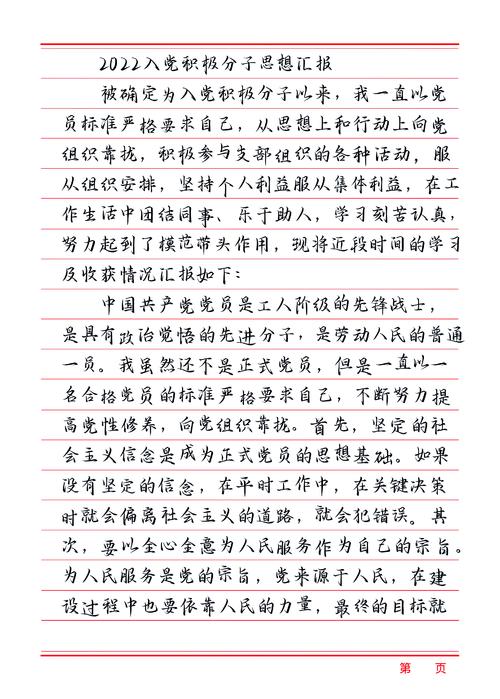 2022入党积极分子思想汇报
被确定为入党积极分子以来，我一直以党
员标准严格要求自己，从思想上和行动上向党
组织靠拢，积极参与支部组织的各种活动，服
从组织安排，坚持个人利益服从集体利益，在工
作生活中团结同事、乐于助人，学习刻苦认真，
努力起到了模范带头作用，现将近段时间的学习
及收获情况汇报如下：
中国共产党党员是工人阶级的先锋战士，
是具有政治觉悟的先进分子，是劳动人民的普通
一员。我虽然还不是正式党员，但是一直以一
名合格党员的标准严格要求自己，不断努力提
高党性修养，向党组织靠拢。首先，坚定的社
会主义信念是成为正式党员的思想基础。如果
没有坚定的信念，在平时工作中，在关键决策
时就会偏离社会主义的道路，就会犯错误。其
次，要以全心全意为人民服务作为自己的宗旨。
为人民服务是党的宗旨，党来源于人民，在建
设过程中也要依靠人民的力量，最终的目标就
第 页